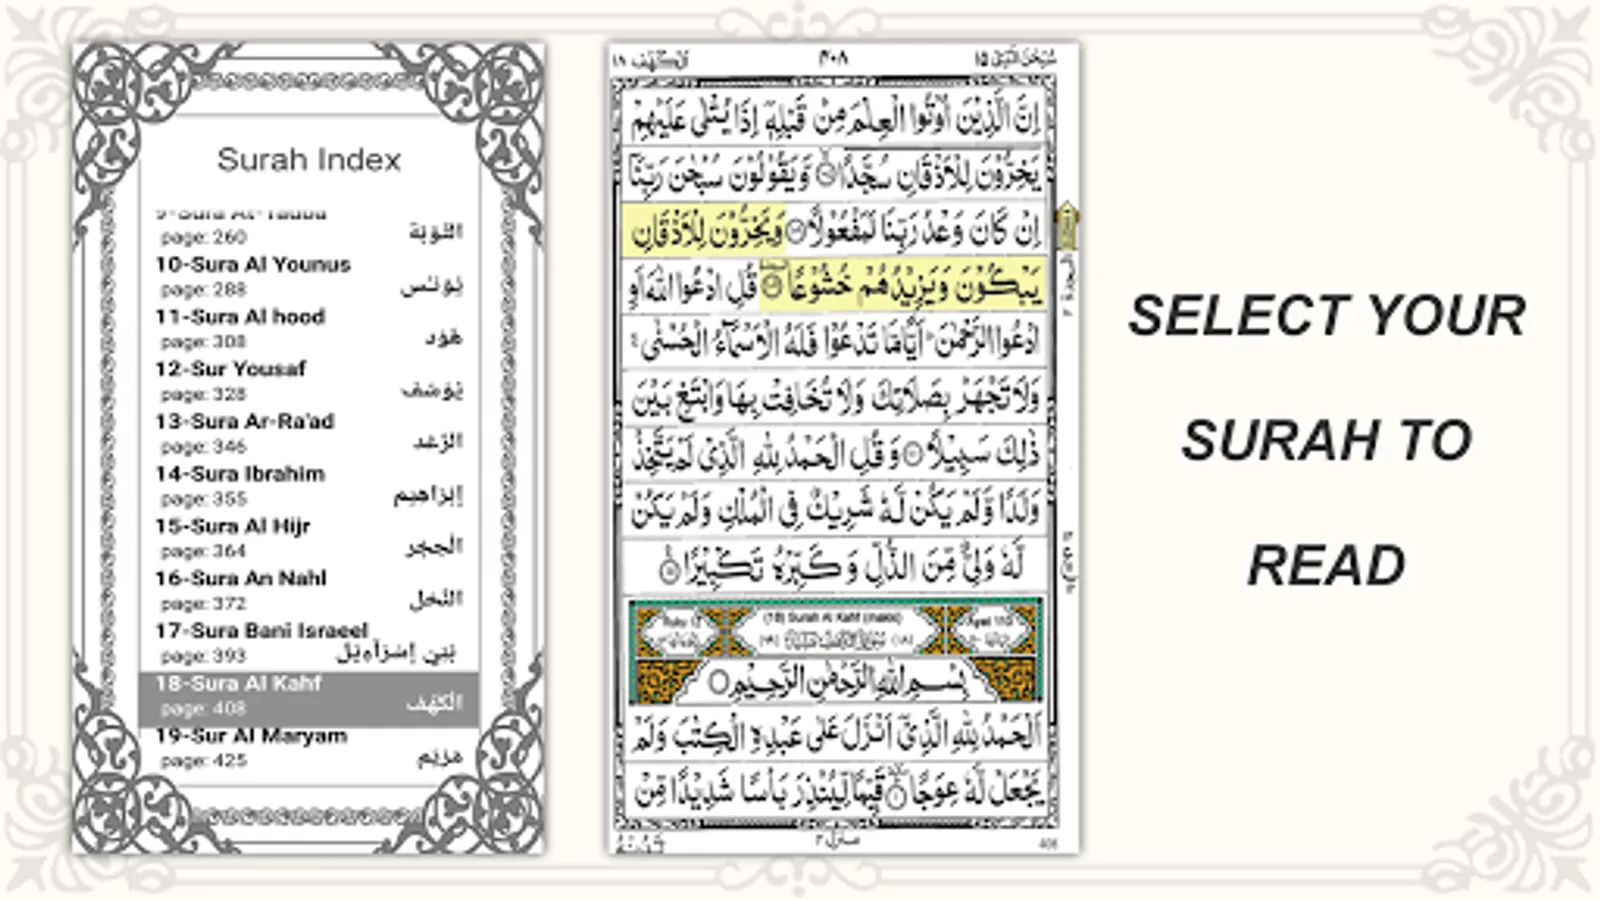 Surah Index
page: 260
التوبة
10-Sura Al Younus
page: 288
يُونس
11-Sura Al hood
page: 308
هُود
12-Sur Yousaf
page: 328
يُوسُف
13-Sura Ar-Ra'ad
page: 346
الرّعد
14-Sura Ibrahim
page: 355
إبراهيم
15-Sura Al Hijr
page: 364
الحِجْر
16-Sura An Nahl
page: 372
النّحل
17-Sura Bani Israeel
page: 393
بَنِي إِسْرَآءِيْل
18-Sura Al Kahf
page: 408
الْكَهْف
19-Sur Al Maryam
page: 425
مَرْيَم
سُبْحٰنَ الَّذِيْۤ ١٥
٤٠٨
اَلْكَهْف ١٨
اِنَّ الَّذِيْنَ اُوْتُوا الْعِلْمَ مِنْ قَبْلِهٖۤ اِذَا يُتْلٰى عَلَيْهِمْ
يَخِرُّوْنَ لِلْاَذْقَانِ سُجَّدًا وَّيَقُوْلُوْنَ سُبْحٰنَ رَبِّنَاۤ
اِنْ كَانَ وَعْدُ رَبِّنَا لَمَفْعُوْلًا وَيَخِرُّوْنَ لِلْاَذْقَانِ
يَبْكُوْنَ وَيَزِيْدُهُمْ خُشُوْعًا قُلِ ادْعُوا اللّٰهَ اَوِ
ادْعُوا الرَّحْمٰنَ اَيًّا مَّا تَدْعُوْا فَلَهُ الْاَسْمَآءُ الْحُسْنٰى
وَلَا تَجْهَرْ بِصَلَاتِكَ وَلَا تُخَافِتْ بِهَا وَابْتَغِ بَيْنَ
ذٰلِكَ سَبِيْلًا وَقُلِ الْحَمْدُ لِلّٰهِ الَّذِيْ لَمْ يَتَّخِذْ
وَلَدًا وَّلَمْ يَكُنْ لَّهٗ شَرِيْكٌ فِي الْمُلْكِ وَلَمْ يَكُنْ
لَّهٗ وَلِيٌّ مِّنَ الذُّلِّ وَكَبِّرْهُ تَكْبِيْرًا
(18) Surah Al Kahf (makki)
بِسْمِ اللّٰهِ الرَّحْمٰنِ الرَّحِيْمِ
اَلْحَمْدُ لِلّٰهِ الَّذِيْۤ اَنْزَلَ عَلٰى عَبْدِهِ الْكِتٰبَ وَلَمْ
يَجْعَلْ لَّهٗ عِوَجًا قَيِّمًا لِّيُنْذِرَ بَاْسًا شَدِيْدًا مِّنْ
منزل ٤
408
SELECT YOUR
SURAH TO
READ